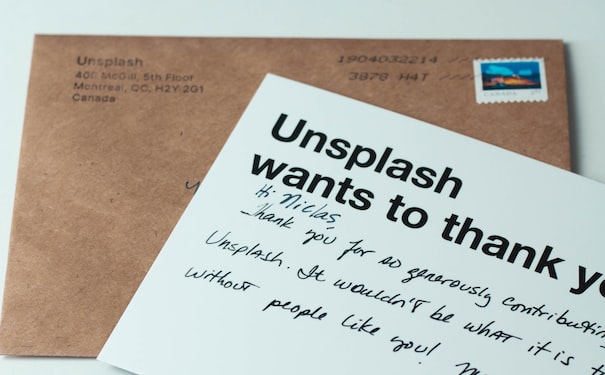 Unsplash
400 McGill, 5th Floor
Montreal, QC, H2Y 2G1
Canada
1904032214
3878 H4T
CANADA
Unsplash
wants to thank
Hi Niclas,
Thank you for so generously
Unsplash. It wouldn't be what it is
without people like you!